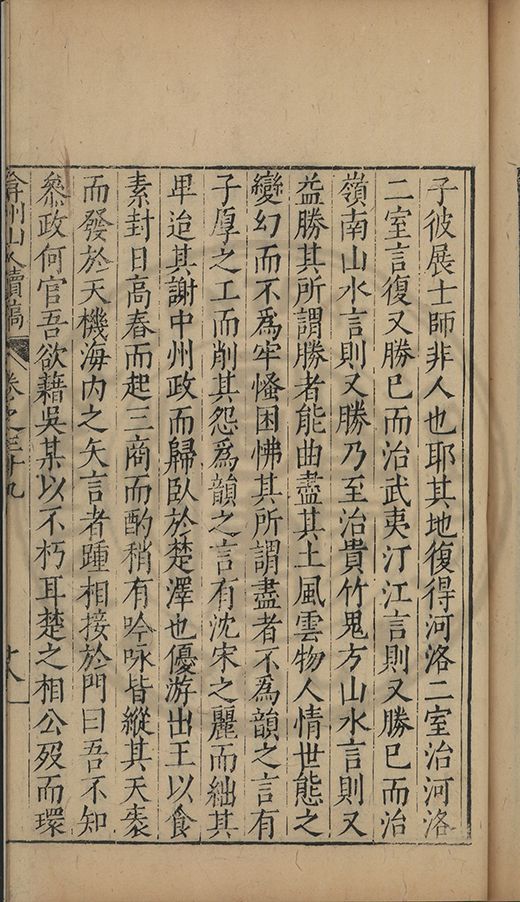 子彼展士師非人也耶其地復得河洛二室治河洛
二室言復又勝已而治武夷汀江言則又勝已而治
嶺南山水言則又勝乃至治貴竹鬼方山水言則又
益勝其所謂勝者能曲盡其土風雲物人情世態之
變幻而不爲牢慅困怫其所謂盡者不爲韻之言有
子厚之工而削其怨爲韻之言有沈宋之麗而絀其
卑迨其謝中州政而歸臥於楚澤也優游出王以食
素封日高舂而起三商而酌稍有吟咏皆縱其天𮕵
而發於天機海内之矢言者踵相接於門曰吾不知
叅政何官吾欲藉吳某以不朽耳楚之相公歿而環
弇州山人續稿 卷之三十九 十八